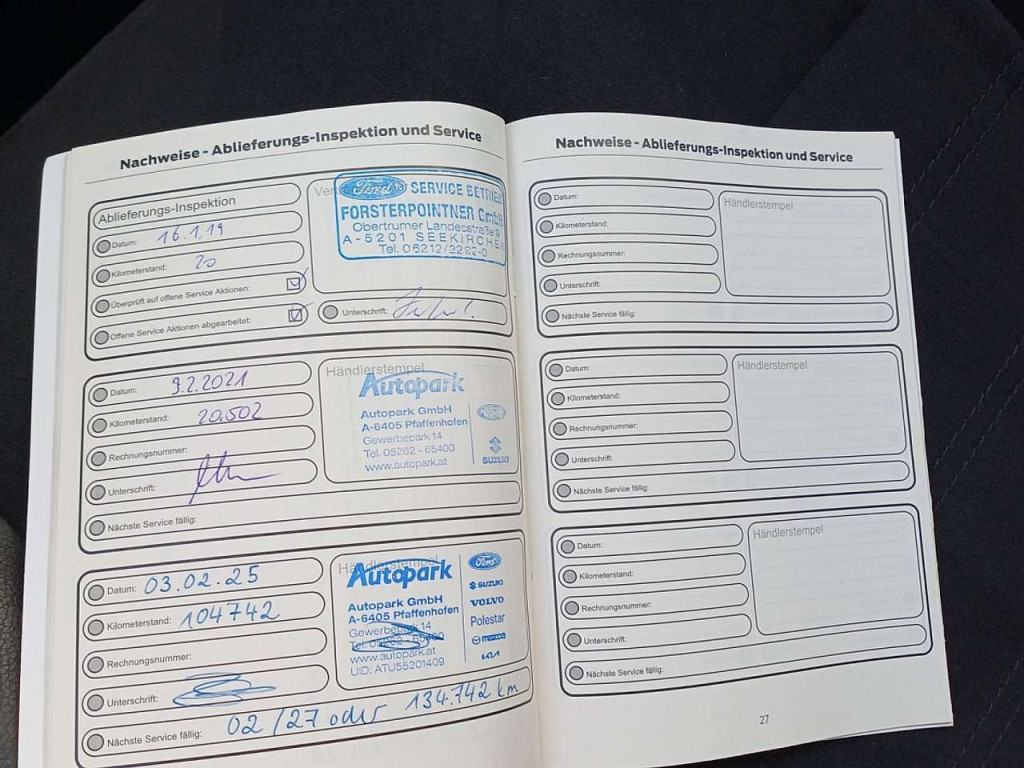 Nachweise - Ablieferungs-Inspektion und Service
Ablieferungs-Inspektion
Datum: 16.1.19
Kilometerstand: 20
Überprüft auf offene Service Aktionen:
Offene Service Aktionen abgearbeitet:
Ford SERVICE BETRIEB
FORSTERPOINTNER GmbH
Obertrumer Landesstraße 9
A-5201 SEEKIRCHEN
Tel. 06212/2282-0
Unterschrift:
Datum: 9.2.2021
Kilometerstand: 20.502
Rechnungsnummer:
Unterschrift:
Nächste Service fällig:
Händlerstempel
Autopark
Autopark GmbH
A-6405 Pfaffenhofen
Gewerbepark 14
Tel. 05262 - 65400
www.autopark.at
Ford
SUZUKI
Datum: 03.02.25
Kilometerstand: 104742
Rechnungsnummer:
Unterschrift:
Nächste Service fällig: 02/27 oder 134.742 km
Händlerstempel
Autopark
Autopark GmbH
A-6405 Pfaffenhofen
Gewerbepark 14
Tel. 05262 - 65400
www.autopark.at
UID: ATU55201409
Ford
SUZUKI
VOLVO
Polestar
mazda
KIA
Nachweise - Ablieferungs-Inspektion und Service
Datum:
Kilometerstand:
Rechnungsnummer:
Unterschrift:
Nächste Service fällig:
Händlerstempel
Datum:
Kilometerstand:
Rechnungsnummer:
Unterschrift:
Nächste Service fällig:
Händlerstempel
Datum:
Kilometerstand:
Rechnungsnummer:
Unterschrift:
Nächste Service fällig:
Händlerstempel
27